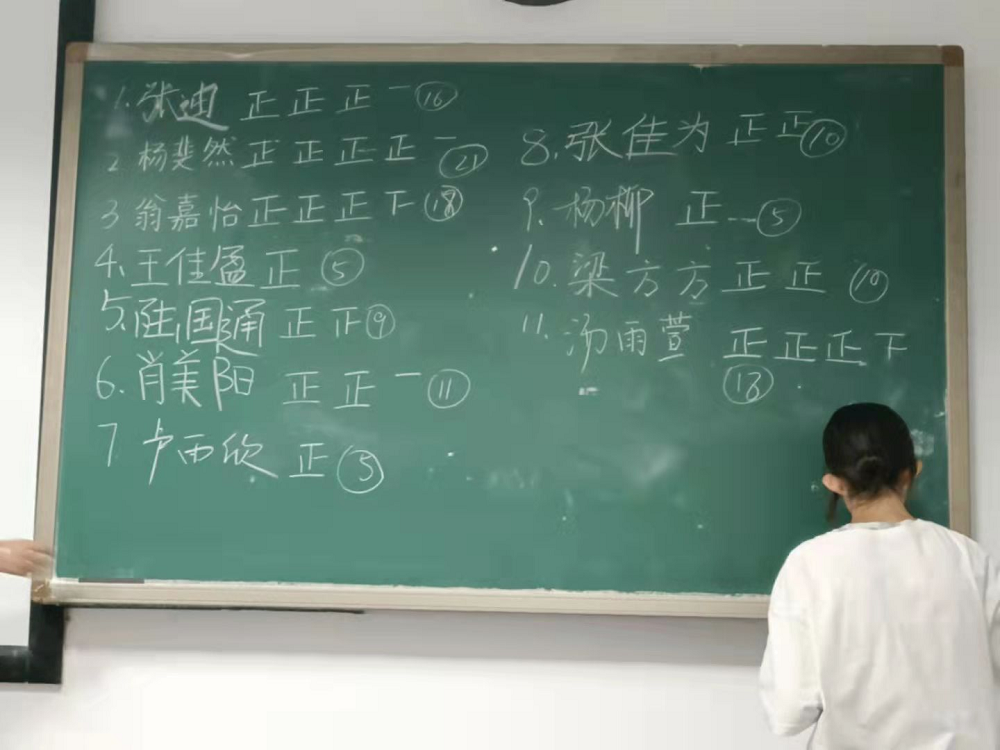 1.张迪 正正正一 ⑯
2 杨斐然 正正正正一 ㉑
3 翁嘉怡 正正正下 ⑱
4.王佳盈 正 ⑤
5.陆国通 正正 ⑨
6.肖美阳 正正一 ⑪
7 卢雨欣 正 ⑤
8.张佳为 正正 ⑩
9.杨柳 正 ⑤
10.梁方方 正正 ⑩
11.汤雨萱 正正正下
⑱